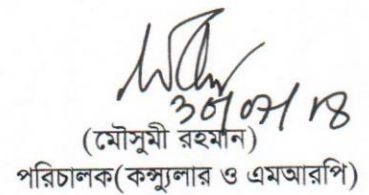 30/07/18
(মৌসুমী রহমান)
পরিচালক(কন্স্যুলার ও এমআরপি)